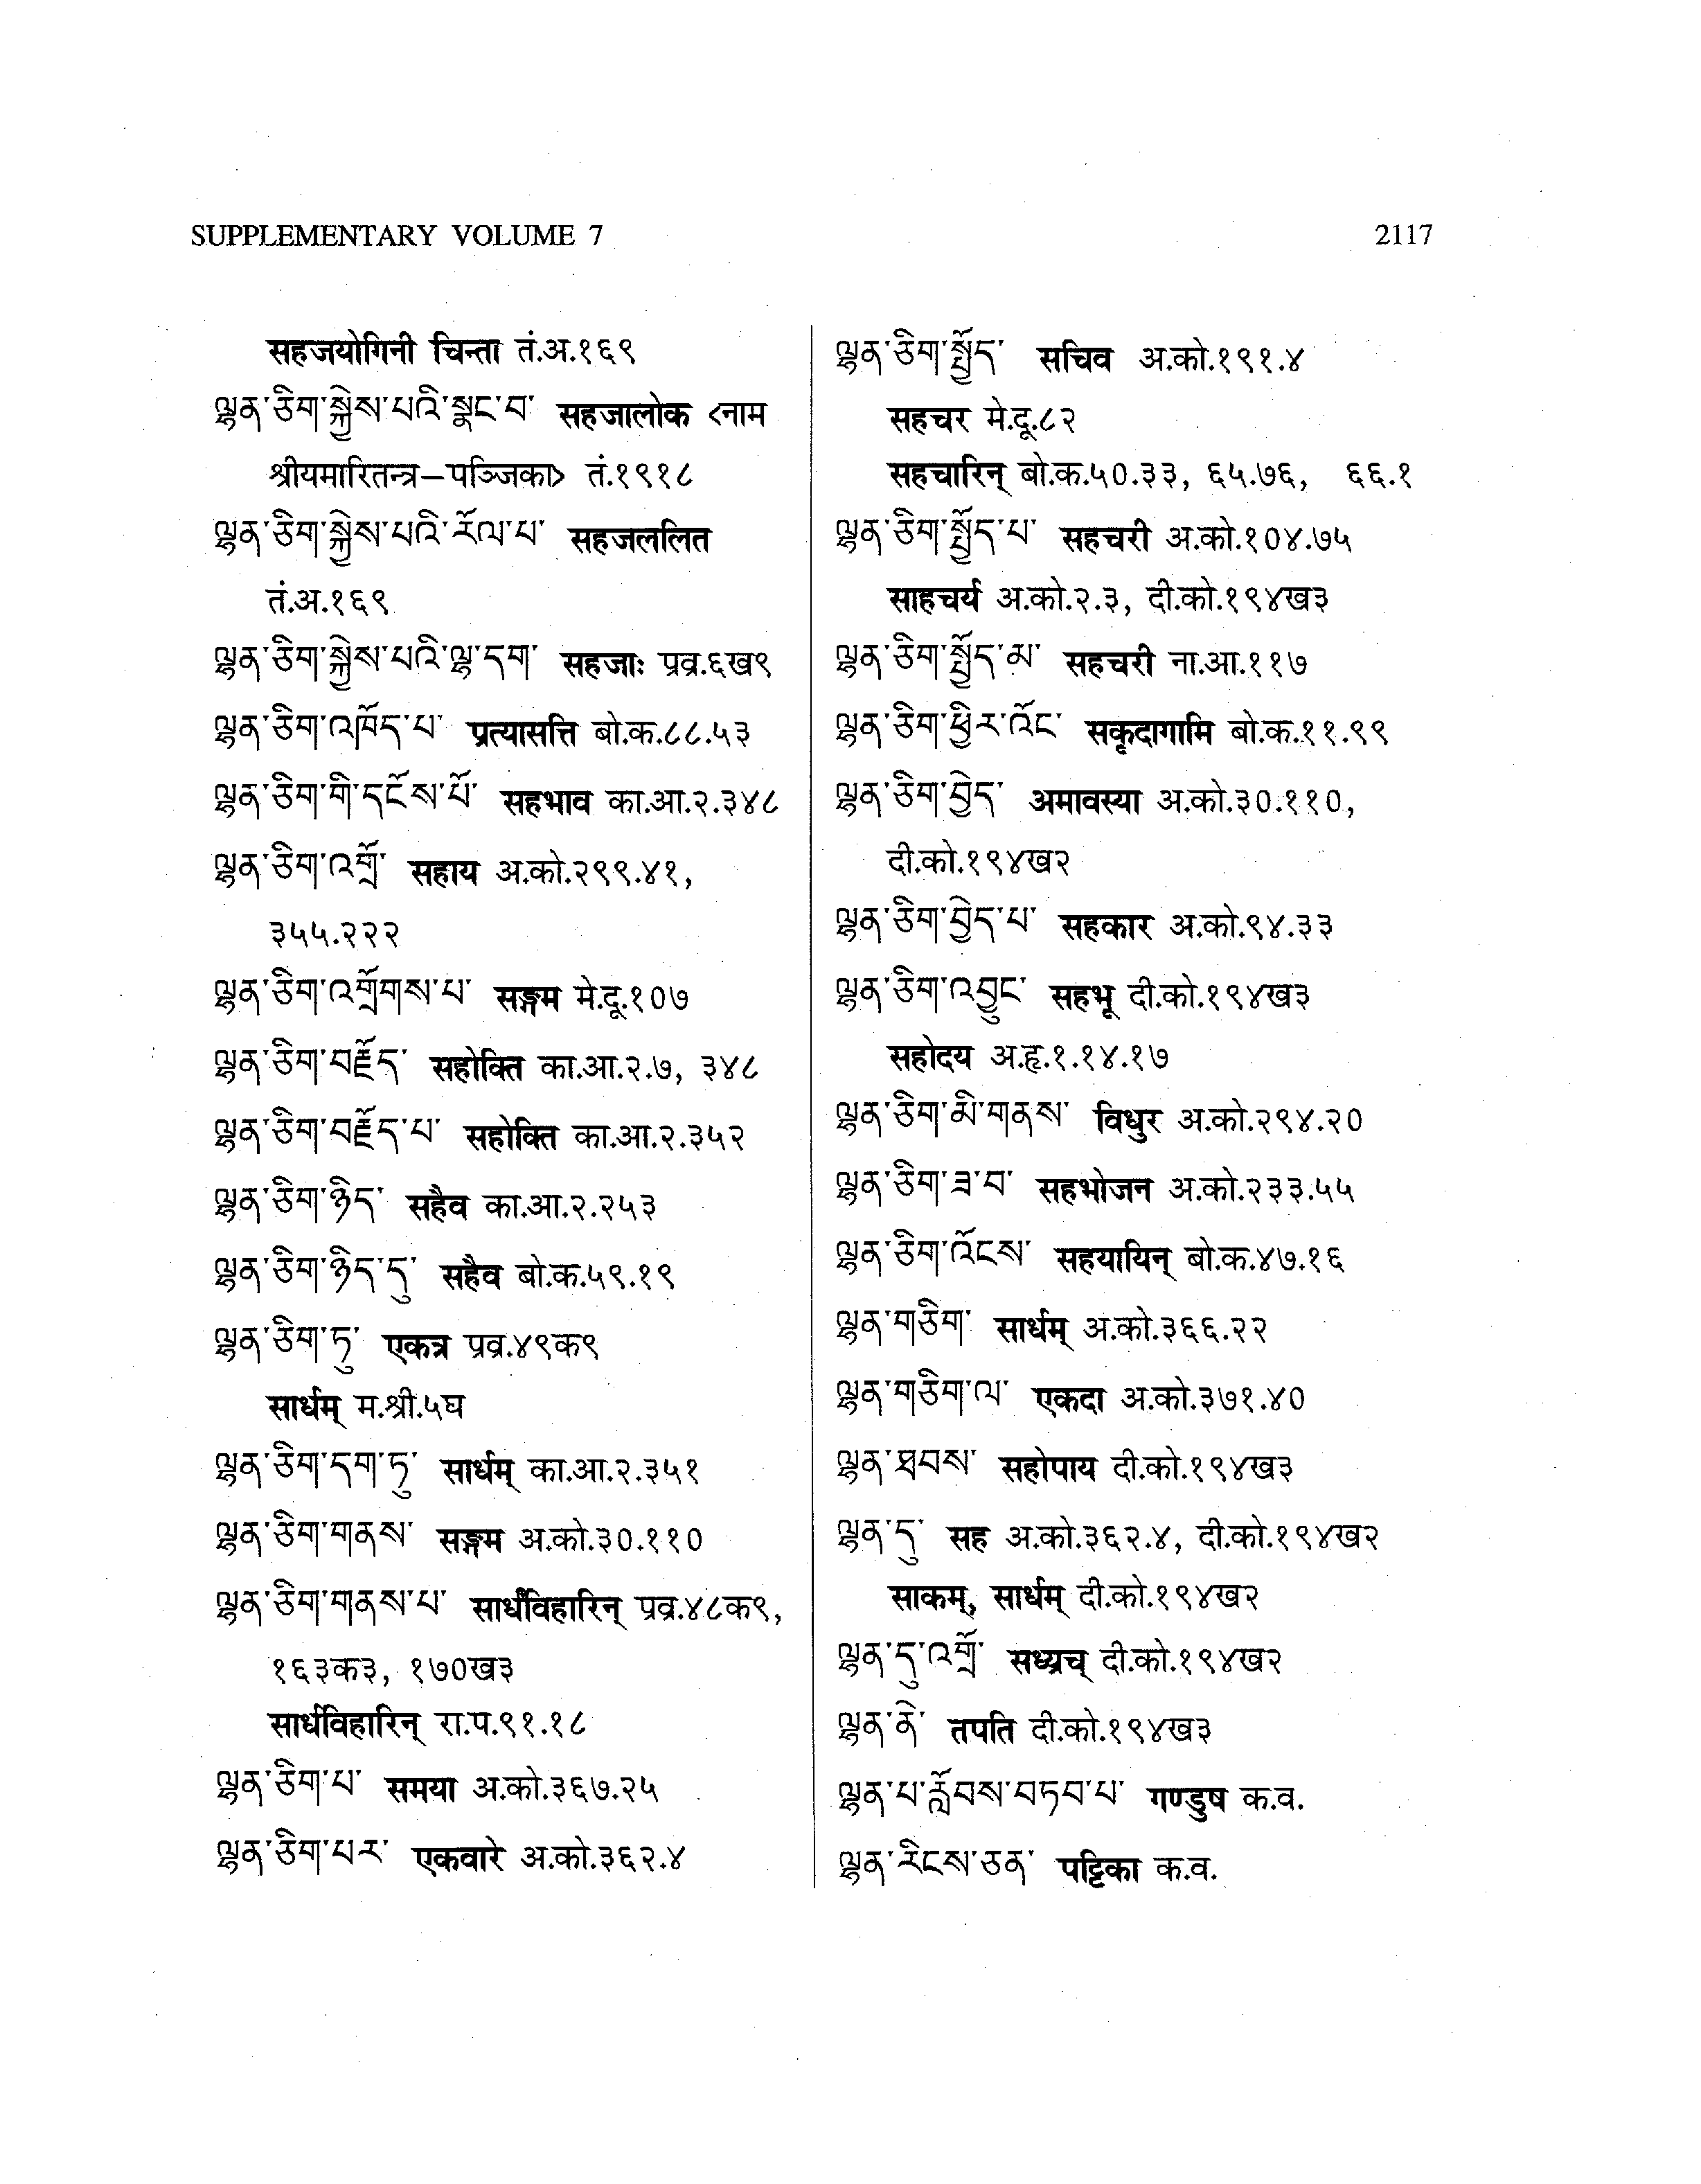 SUPPLEMENTARY VOLUME 7 2117
सहजयोगिनी चिन्ता तं.अ.१६९
ལྷན་ཅིག་སྐྱེས་པའི་སྣང་བ་ सहजालोक <नाम
श्रीयमारितन्त्र–पञ्जिका> तं.१९१८
ལྷན་ཅིག་སྐྱེས་པའི་རོལ་པ་ सहजललित
तं.अ.१६९
ལྷན་ཅིག་སྐྱེས་པའི་ལྷ་དག་ सहजाः प्रव्र.६ख९
ལྷན་ཅིག་འཁོད་པ་ प्रत्यासत्ति बो.क.८८.५३
ལྷན་ཅིག་གི་དངོས་པོ་ सहभाव का.आ.२.३४८
ལྷན་ཅིག་འགྲོ་ सहाय अ.को.२९९.४१,
३५५.२२२
ལྷན་ཅིག་འགྲོགས་པ་ सङ्गम मे.दू.१०७
ལྷན་ཅིག་བརྗོད་ सहोक्ति का.आ.२.७, ३४८
ལྷན་ཅིག་བརྗོད་པ་ सहोक्ति का.आ.२.३५२
ལྷན་ཅིག་ཉིད་ सहैव का.आ.२.२५३
ལྷན་ཅིག་ཉིད་དུ་ सहैव बो.क.५९.१९
ལྷན་ཅིག་ཏུ་ एकत्र प्रव्र.४९क९
सार्धम् म.श्री.५घ
ལྷན་ཅིག་དག་ཏུ་ सार्धम् का.आ.२.३५१
ལྷན་ཅིག་གནས་ सङ्गम अ.को.३०.११०
ལྷན་ཅིག་གནས་པ་ सार्धंविहारिन् प्रव्र.४८क९,
१६३क३, १७०ख३
सार्धविहारिन् रा.प.९१.१८
ལྷན་ཅིག་པ་ समया अ.को.३६७.२५
ལྷན་ཅིག་པར་ एकवारे अ.को.३६२.४
ལྷན་ཅིག་སྤྱོད་ सचिव अ.को.१९१.४
सहचर मे.दू.८२
सहचारिन् बो.क.५०.३३, ६५.७६, ६६.१
ལྷན་ཅིག་སྤྱོད་པ་ सहचरी अ.को.१०४.७५
साहचर्य अ.को.२.३, दी.को.१९४ख३
ལྷན་ཅིག་སྤྱོད་མ་ सहचरी ना.आ.११७
ལྷན་ཅིག་ཕྱིར་འོང་ सकृदागामि बो.क.११.९९
ལྷན་ཅིག་བྱེད་ अमावस्या अ.को.३०.११०,
दी.को.१९४ख२
ལྷན་ཅིག་བྱེད་པ་ सहकार अ.को.९४.३३
ལྷན་ཅིག་འབྱུང་ सहभू दी.को.१९४ख३
सहोदय अ.हृ.१.१४.१७
ལྷན་ཅིག་མི་གནས་ विधुर अ.को.२९४.२०
ལྷན་ཅིག་ཟ་བ་ सहभोजन अ.को.२३३.५५
ལྷན་ཅིག་འོངས་ सहयायिन् बो.क.४७.१६
ལྷན་གཅིག་ सार्धम् अ.को.३६६.२२
ལྷན་གཅིག་ལ་ एकदा अ.को.३७१.४०
ལྷན་ཐབས་ सहोपाय दी.को.१९४ख३
ལྷན་དུ་ सह अ.को.३६२.४, दी.को.१९४ख२
साकम्, सार्धम् दी.को.१९४ख२
ལྷན་དུ་འགྲོ་ सध्य्रच् दी.को.१९४ख२
ལྷན་ནེ་ तपति दी.को.१९४ख३
ལྷན་པ་རློབས་བཏབ་པ་ गण्डुष क.व.
ལྷན་རིངས་ཅན་ पट्टिका क.व.